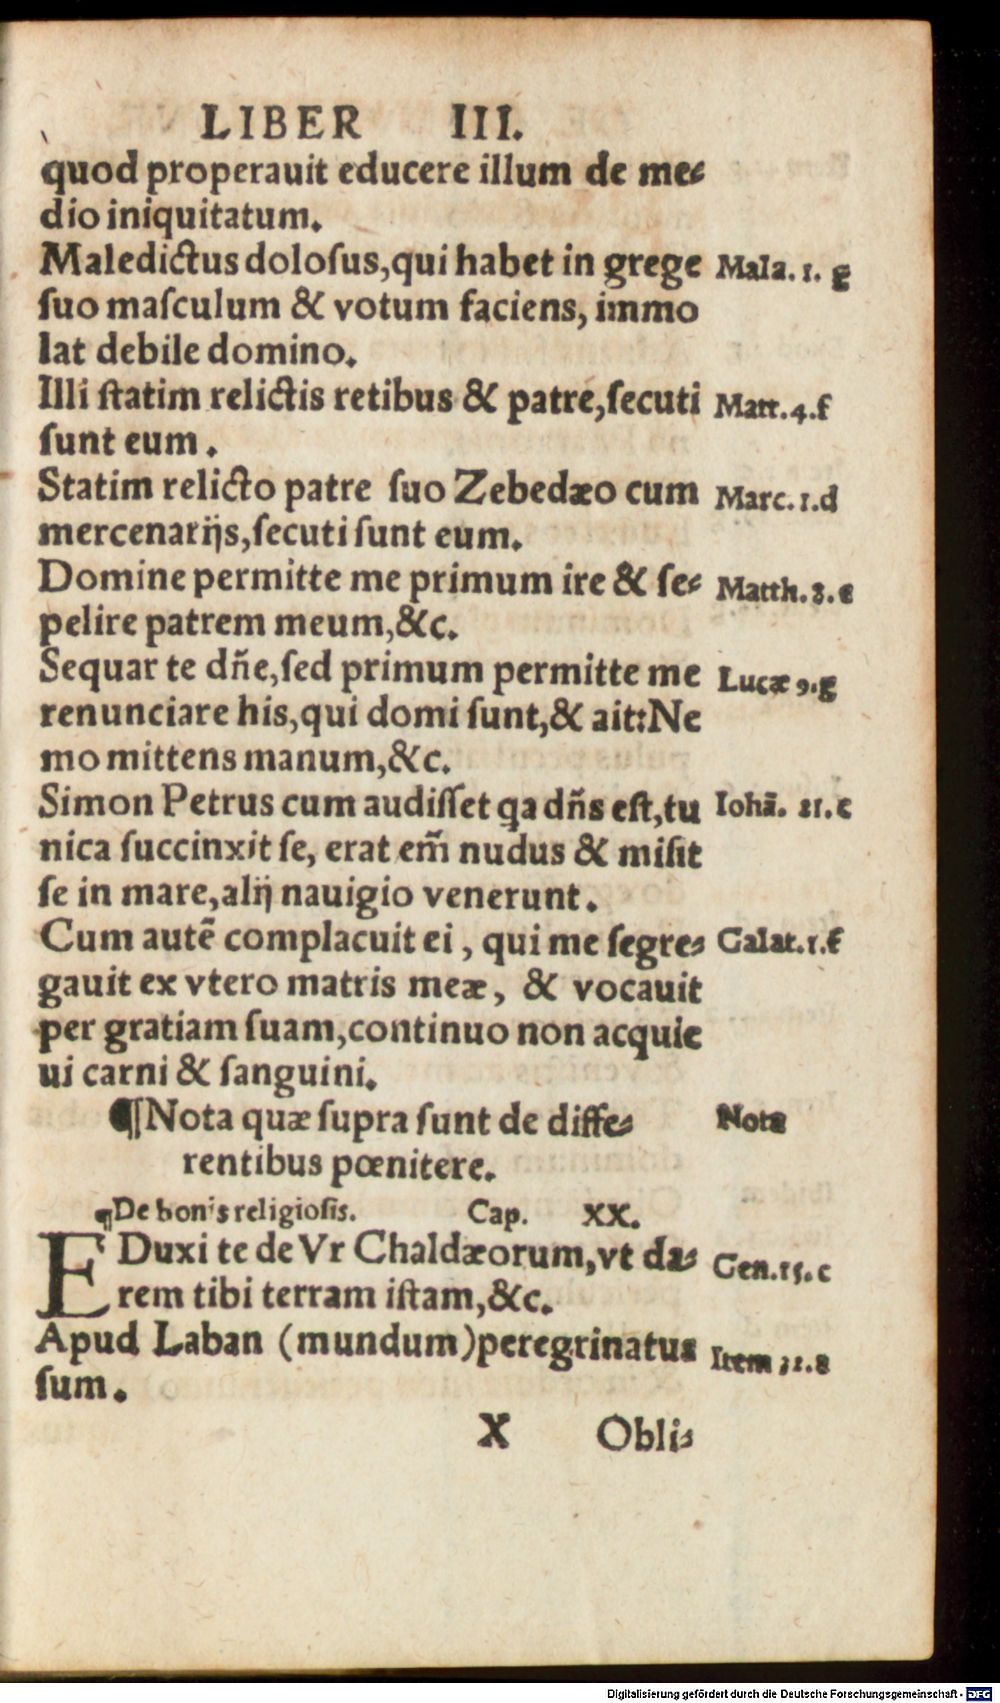 LIBER III.
quod properauit educere illum de me⸗
dio iniquitatum.
Maledictus doloſus,qui habet in grege Mala. 1. g
ſuo maſculum & votum faciens, immo
lat debile domino.
Illi ſtatim relictis retibus & patre,ſecuti Matt.4.f
ſunt eum.
Statim relicto patre ſuo Zebedæo cum Marc.1.d
mercenarijs,ſecuti ſunt eum.
Domine permitte me primum ire & ſe⸗ Matth.8.c
pelire patrem meum,&c.
Sequar te dñe,ſed primum permitte me Lucæ 9.g
renunciare his,qui domi ſunt,& ait:Ne
mo mittens manum,&c.
Simon Petrus cum audiſſet qa dñs eſt,tu Iohã. 21.c
nica ſuccinxit ſe, erat em̃ nudus & miſit
ſe in mare,alij nauigio venerunt.
Cum autẽ complacuit ei, qui me ſegre⸗ Galat.1.f
gauit ex vtero matris meæ, & vocauit
per gratiam ſuam,continuo non acquie
ui carni & ſanguini.
¶Nota quæ ſupra ſunt de diffe⸗ Nota
rentibus pœnitere.
¶De bonis religioſis. Cap. XX.
EDuxi te de Vr Chaldæorum,vt da⸗ Gen.15.c
rem tibi terram iſtam,&c.
Apud Laban (mundum)peregrinatus Item
ſum.
X Obli⸗
Digitalisierung gefördert durch die Deutsche Forschungsgemeinschaft - DFG